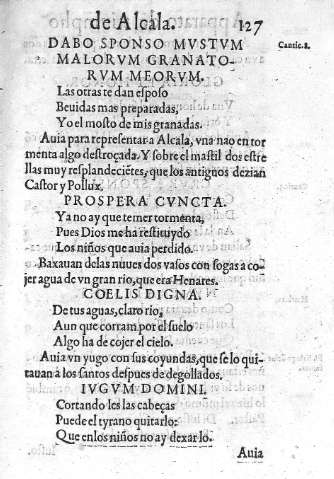 de Alcala. 127
DABO SPONSO MVSTVM Cantic.8.
MALORVM GRANATO-
RVM MEORVM.
Las otras te dan esposo
Beuidas mas preparadas,
Yo el mosto de mis granadas.
Auia para representar a Alcala, vna nao en tor
menta algo destroçada. Y sobre el mastil dos estre
llas muy resplandeciẽtes, que los antiguos dezian
Castor y Pollux.
PROSPERA CVNCTA.
Ya no ay que temer tormenta,
Pues Dios me ha restituydo
Los niños que auia perdido.
Baxauan delas nuues dos vasos con sogas a co-
jer agua de vn gran rio, que era Henares.
COELIS DIGNA.
De tus aguas, claro rio,
Aun que corram por el suelo
Algo ha de cojer el cielo.
Auia vn yugo con sus coyundas, que se lo qui-
tauan a los santos despues de degollados.
IVGVM DOMINI.
Cortando les las cabeças
Puede el tyrano quitarlo:
Que enlos niños no ay dexarlo.
Auia